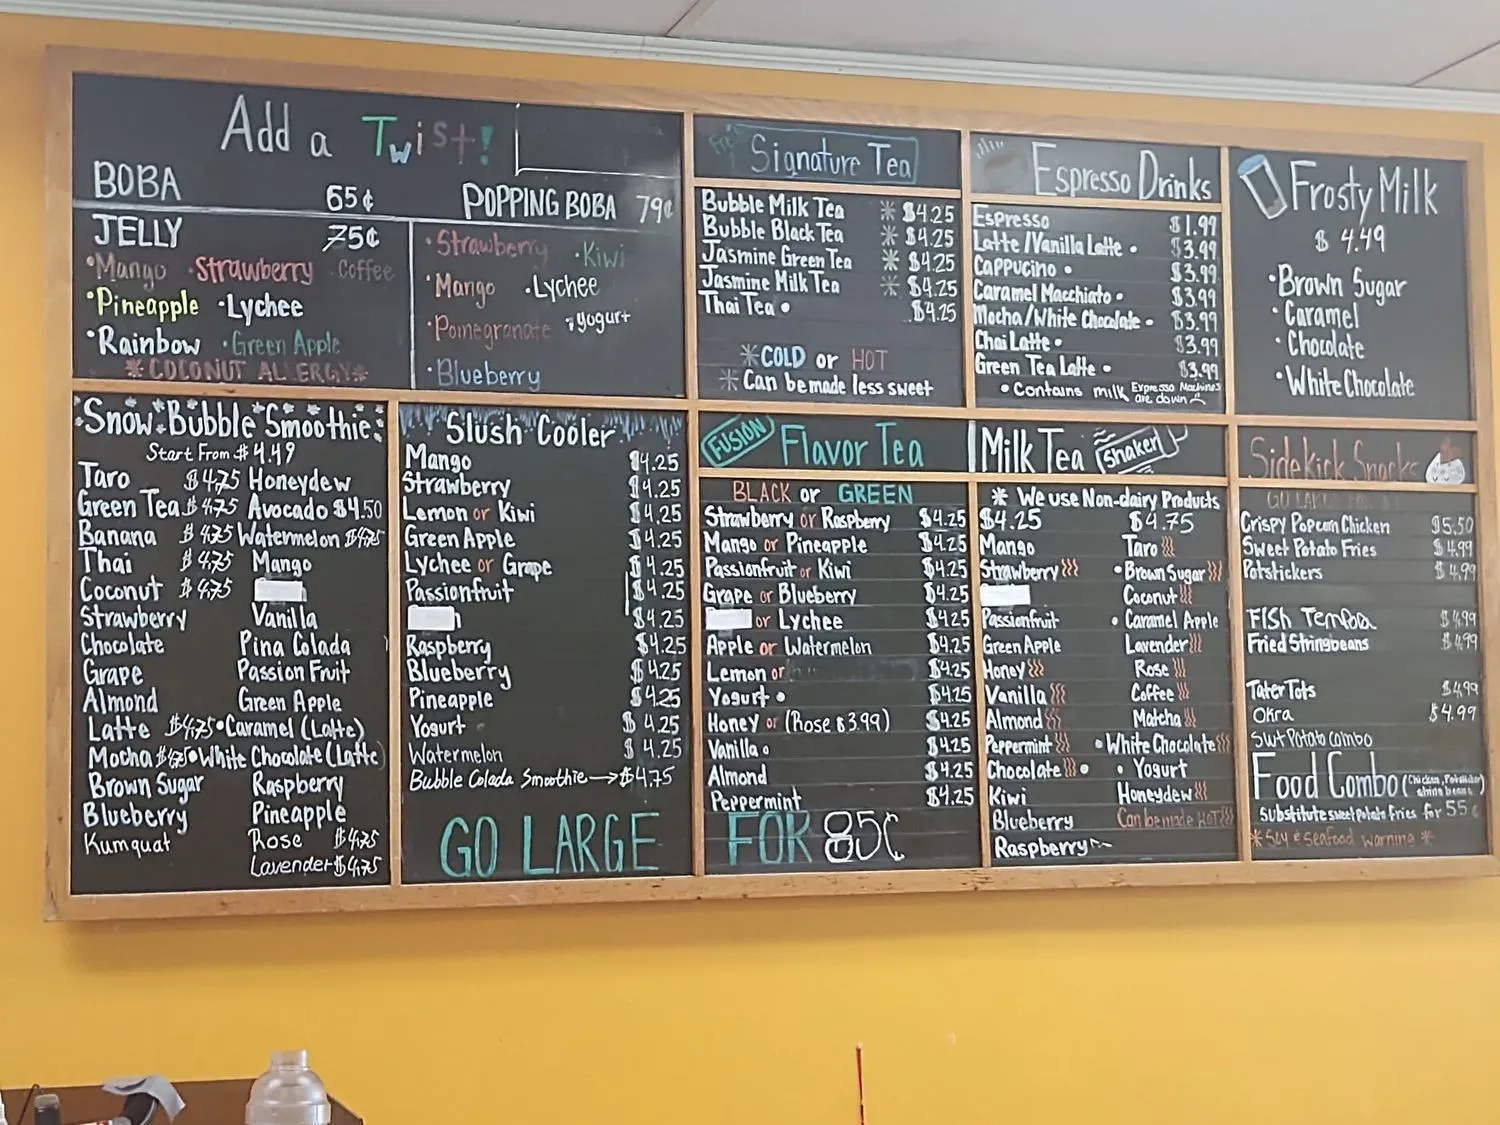 Add a Twist!
BOBA 65¢
POPPING BOBA 79¢
JELLY 75¢
·Mango ·Strawberry ·Coffee
·Pineapple ·Lychee
·Rainbow ·Green Apple
*COCONUT ALLERGY*
·Strawberry ·Kiwi
·Mango ·Lychee
·Pomegranate ·yogurt
·Blueberry
Signature Tea
Bubble Milk Tea * $4.25
Bubble Black Tea * $4.25
Jasmine Green Tea * $4.25
Jasmine Milk Tea * $4.25
Thai Tea • $4.25
*COLD or HOT
*Can be made less sweet
Espresso Drinks
Espresso $1.99
Latte/Vanilla Latte • $3.99
Cappucino • $3.99
Caramel Macchiato • $3.99
Mocha/White Chocolate • $3.99
Chai Latte • $3.99
Green Tea Latte • $3.99
• Contains milk
Expresso Machines
are down
Frosty Milk
$ 4.49
·Brown Sugar
·Caramel
·Chocolate
·White Chocolate
Snow Bubble Smoothie
Start From $4.49
Taro $4.75 Honeydew
Green Tea $4.75 Avocado $4.50
Banana $4.75 Watermelon $4.75
Thai $4.75 Mango
Coconut $4.75
Strawberry Vanilla
Chocolate Pina Colada
Grape Passion Fruit
Almond Green Apple
Latte $4.75 •Caramel (Latte)
Mocha $4.75 •White Chocolate (Latte)
Brown Sugar Raspberry
Blueberry Pineapple
Kumquat Rose $4.75
Lavender $4.75
Slush Cooler
Mango $4.25
Strawberry $4.25
Lemon or Kiwi $4.25
Green Apple $4.25
Lychee or Grape $4.25
Passionfruit $4.25
$4.25
Raspberry $4.25
Blueberry $4.25
Pineapple $4.25
Yogurt $4.25
Watermelon $4.25
Bubble Colada Smoothie → $4.75
GO LARGE
FUSION Flavor Tea
BLACK or GREEN
Strawberry or Raspberry $4.25
Mango or Pineapple $4.25
Passionfruit or Kiwi $4.25
Grape or Blueberry $4.25
or Lychee $4.25
Apple or Watermelon $4.25
Lemon or $4.25
Yogurt • $4.25
Honey or (Rose $3.99) $4.25
Vanilla • $4.25
Almond $4.25
Peppermint $4.25
FOR 85¢
Milk Tea Shaker
* We use Non-dairy Products
$4.25 $4.75
Mango Taro
Strawberry • Brown Sugar
Coconut
Passionfruit • Caramel Apple
Green Apple Lavender
Honey Rose
Vanilla Coffee
Almond Matcha
Peppermint • White Chocolate
Chocolate • • Yogurt
Kiwi Honeydew
Blueberry Can be made HOT
Raspberry
Sidekick Snacks
Crispy Popcorn Chicken $5.50
Sweet Potato Fries $4.99
Potstickers $4.99
Fish Tempora $4.99
Fried Stringbeans $4.99
Tater Tots $4.99
Okra $4.99
Swt Potato Combo
Food Combo (Chicken, Potsticker,
string beans)
Substitute sweet potato fries for 55¢
*Soy & Seafood warning *